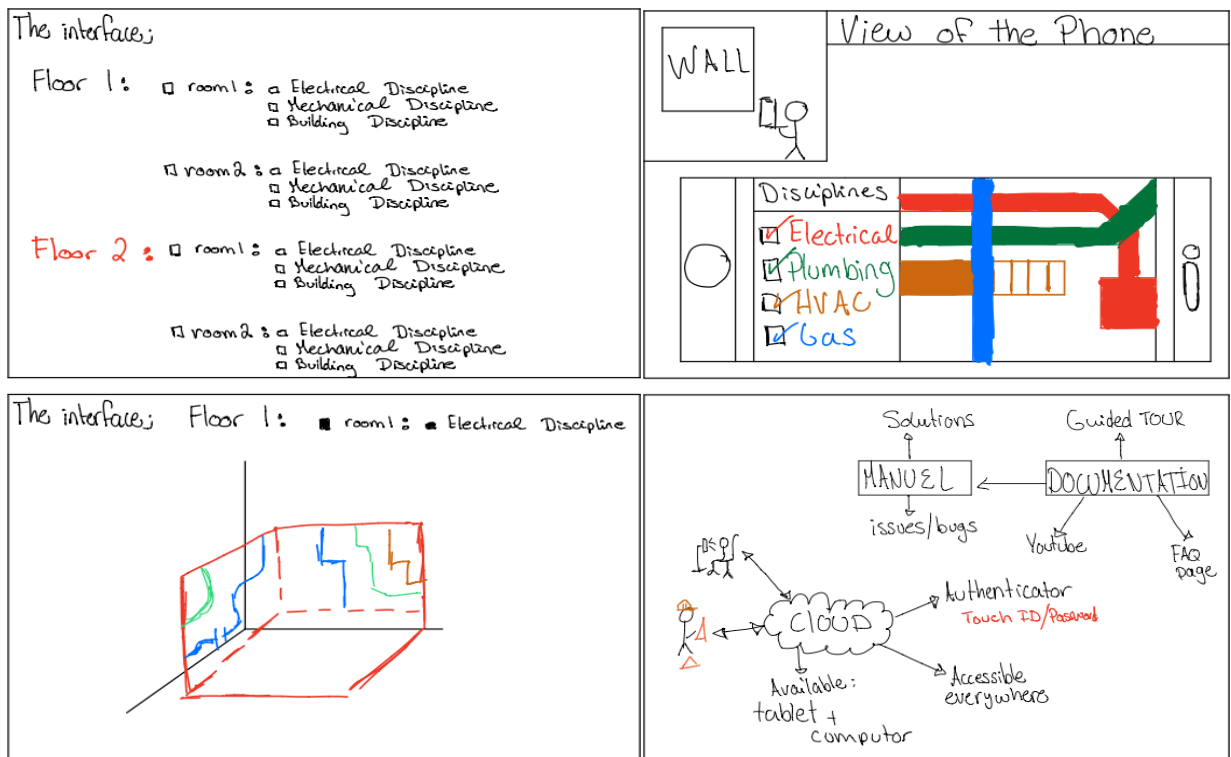 The interface;
Floor 1: room1: Electrical Discipline
Mechanical Discipline
Building Discipline
room2: Electrical Discipline
Mechanical Discipline
Building Discipline
Floor 2: room1: Electrical Discipline
Mechanical Discipline
Building Discipline
room2: Electrical Discipline
Mechanical Discipline
Building Discipline
View of the Phone
WALL
Disciplines
Electrical
Plumbing
HVAC
Gas
The interface; Floor 1: room1: Electrical Discipline
Solutions
Guided TOUR
MANUEL
DOCUMENTATION
issues/bugs
Youtube
FAQ
page
CLOUD
Authenticator
Touch ID/Password
Available:
tablet +
computor
Accessible
everywhere